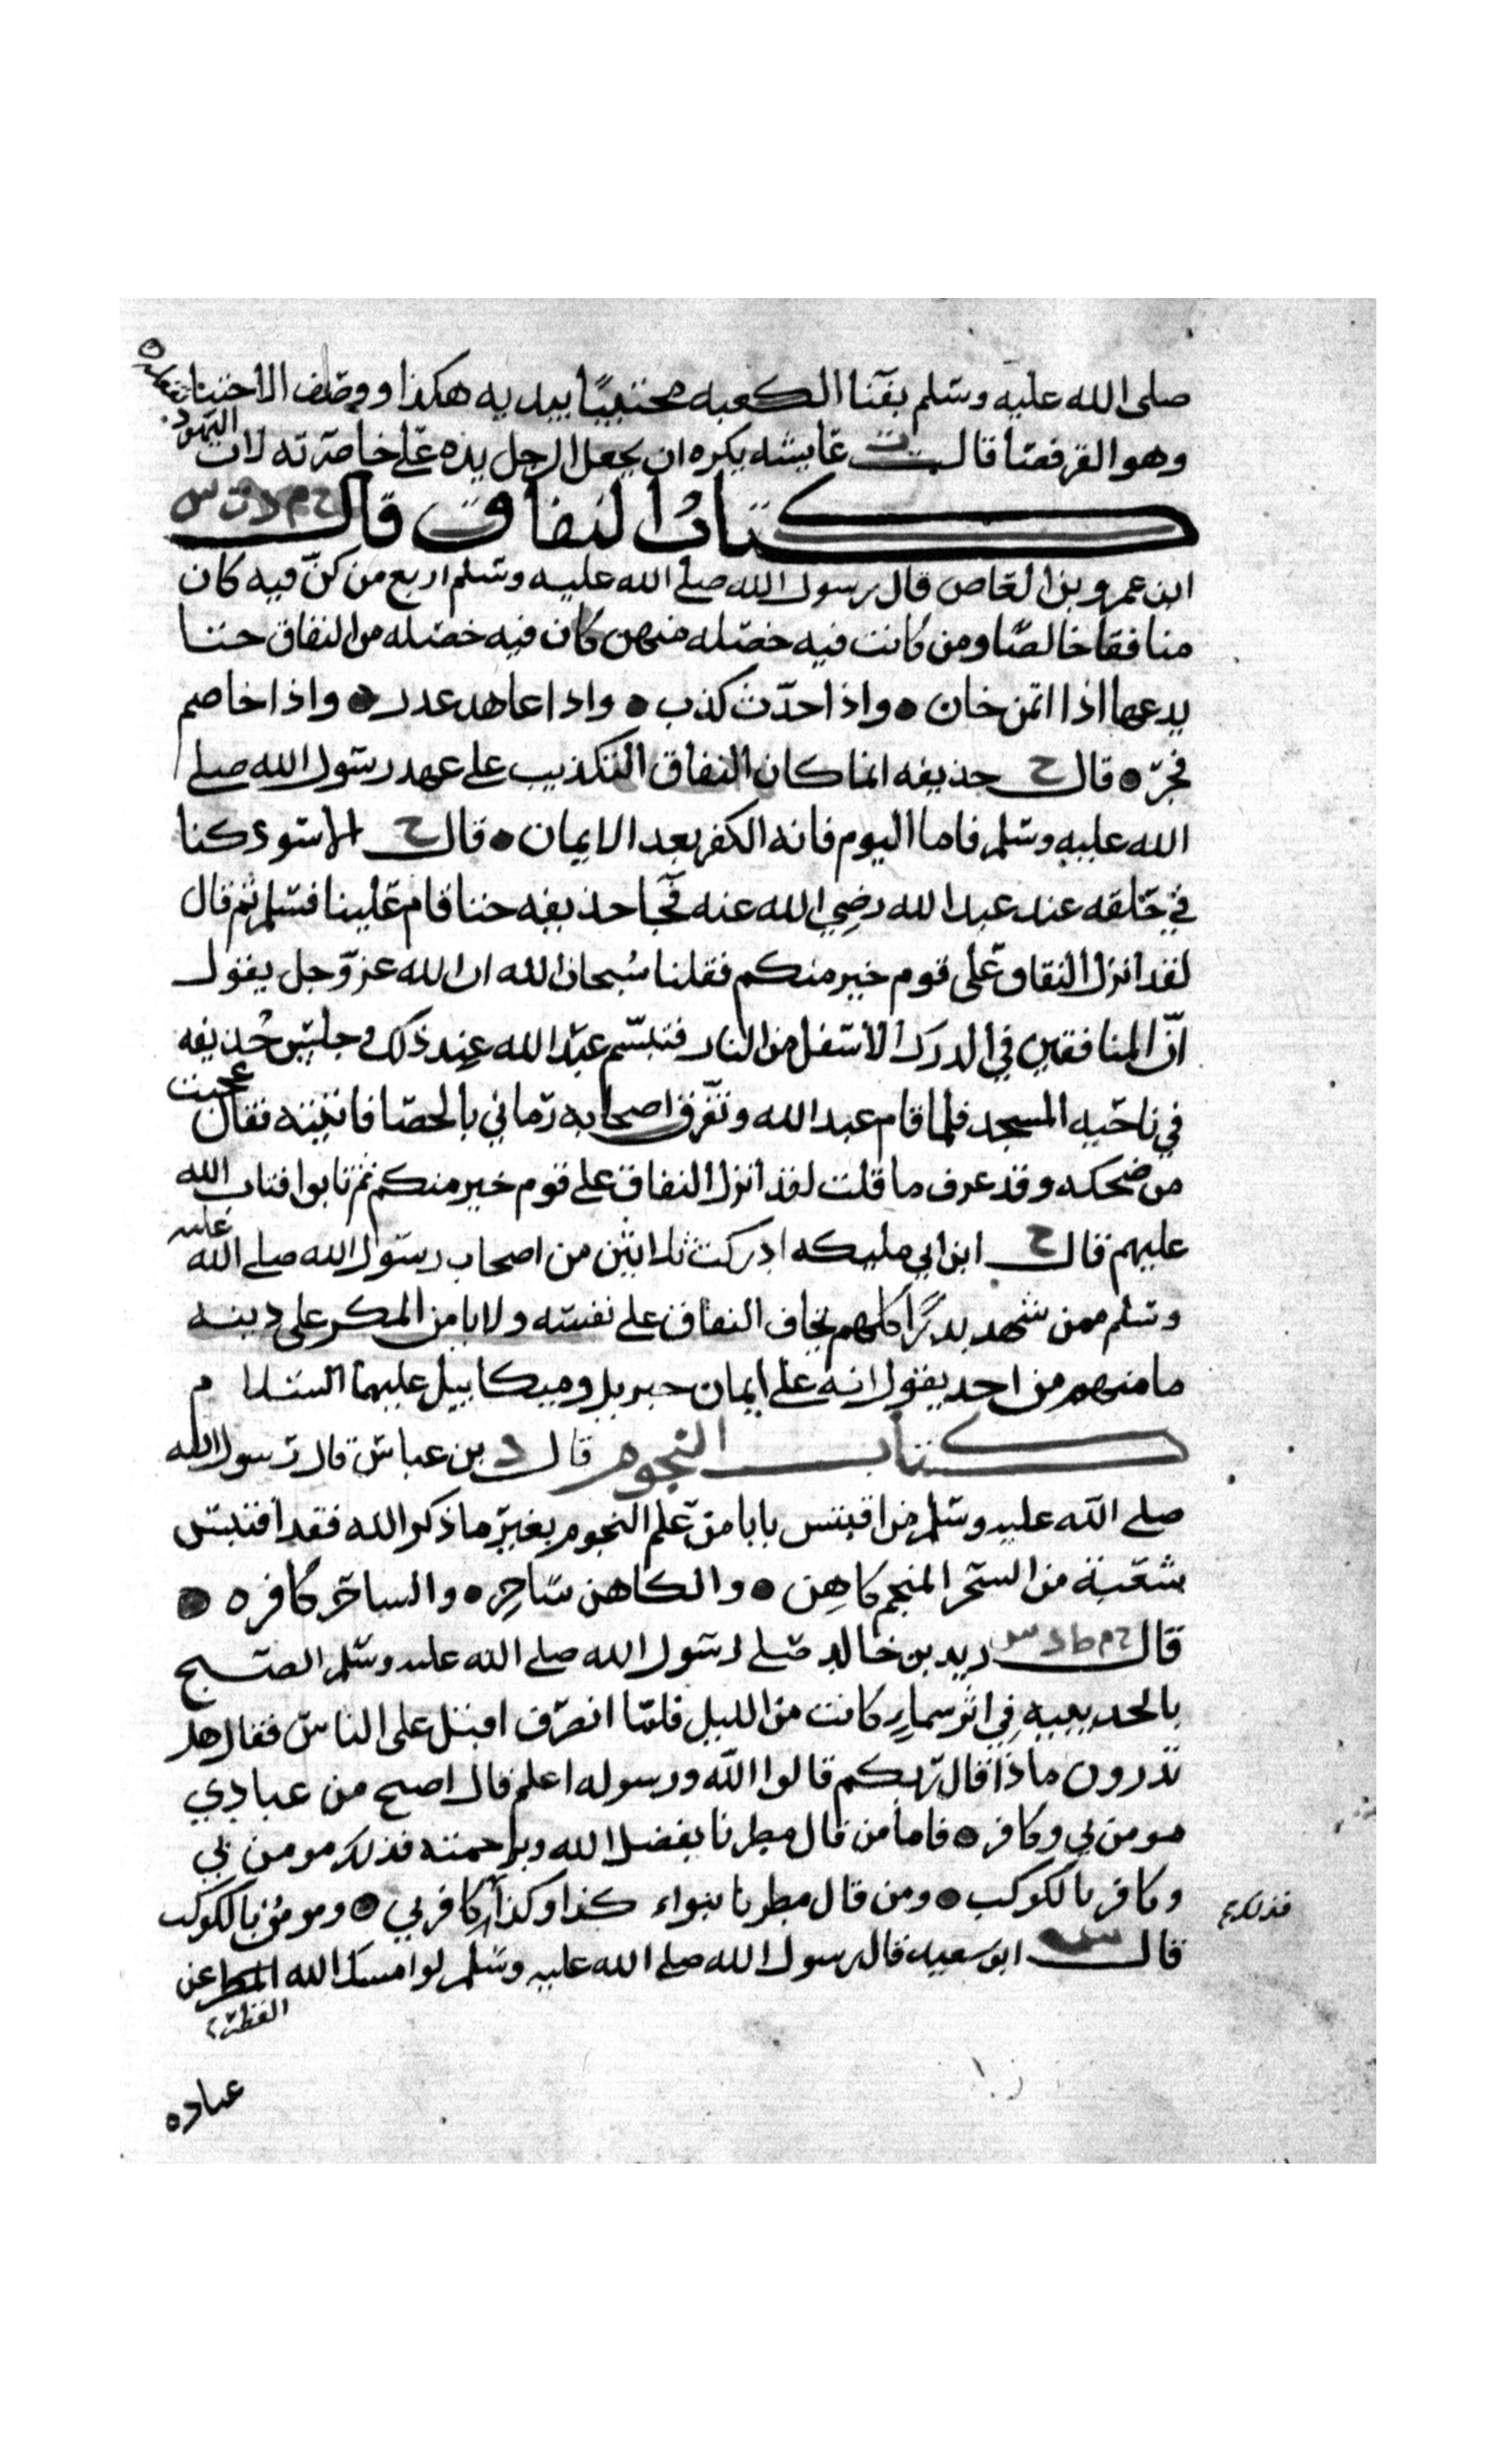 صلى الله عليه وسلم بفنا الكعبه محتبيًا بيديه هكذا ووصف الاحتبا
وهو القرفصا قالت عايشه يكره ان يجعل الرجل يده على خاصرته لان اليهود تفعله
كتاب النفاق قال خ م د ت س
ابن عمرو بن العاص قال رسول الله صلى الله عليه وسلم اربع من كنّ فيه كان
منافقا خالصًا ومن كانت فيه خصله منهن كان فيه خصله من النفاق حتا
يدعها اذا اتمن خان ● واذا حدّث كذب ● واذا عاهد غدر ● واذا خاصم
فجر ● قال خ حذيفه انما كان النفاق التكذيب على عهد رسول الله صلى
الله عليه وسلم فاما اليوم فانه الكفر بعد الايمان ● قال خ الاسود كنا
في حلقه عند عبد الله رضي الله عنه فجا حذيفه حتا قام علينا فسلم ثم قال
لقد انزل النفاق على قوم خير منكم فقلنا سُبحان الله ان الله عزّ وجل يقول
انّ المنافقين في الدرك الاسفل من النار فتبسّم عبد الله عند ذلك وجلس حُذيفه
في ناحيه المسجد فلما قام عبد الله وتفرّق اصحابه رماني بالحصا فاتيته فقال عجبت
من ضحكه وقد عرف ما قلت لقد انزل النفاق على قوم خير منكم ثم تابوا فتاب الله
عليهم قال خ ابن ابي مليكه ادركت ثلاثين من اصحاب رسول الله صلى الله عليه
وسلم ممن شهد بدرًا كلهم يخاف النفاق على نفسه ولا يامن المكر على دينه
ما منهم من احد يقول انه على ايمان جبريل وميكاييل عليهما السلام
كتاب النجوم قال د بن عباس قال رسول الله
صلى الله عليه وسلم من اقتبس بابا من علم النجوم بغير ما ذكر الله فقد اقتبس
شعبة من السحر المنجم كاهن ● والكاهن ساحر ● والساحر كافر ●
قال خ م ط د س زيد بن خالد صلى رسول الله صلى الله عليه وسلم الصبح
بالحديبيه في اثر سماء كانت من الليل فلما انصرف اقبل على الناس فقال هل
تدرون ماذا قال ربكم قالوا الله ورسوله اعلم قال اصبح من عبادي
مومن بي وكافر ● فاما من قال مطرنا بفضل الله وبرحمته فذلك مومن بي
وكافر بالكوكب ● ومن قال مطرنا بنواء كذا وكذا كافر بي ● ومومن بالكوكب
فذلك
قال س ابو سعيد قال رسول الله صلى الله عليه وسلم لو امسك الله المطر عن
القطر
عباده